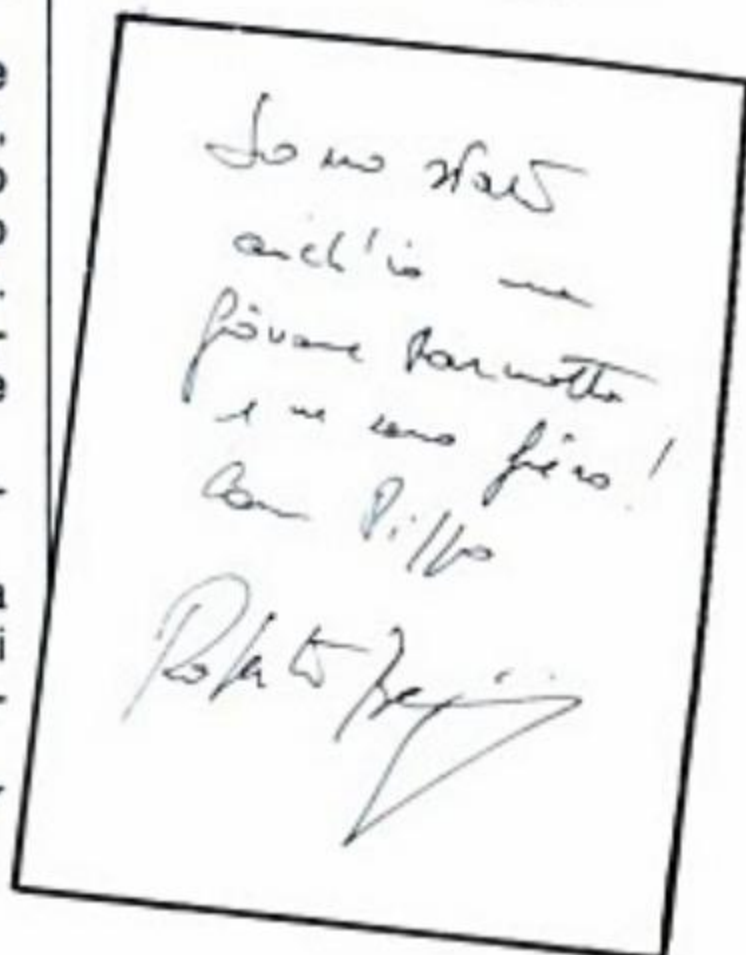 Sono stato
anch'io una
giovane Marmotta
e ne sono fiero!
Pippo
Roberto